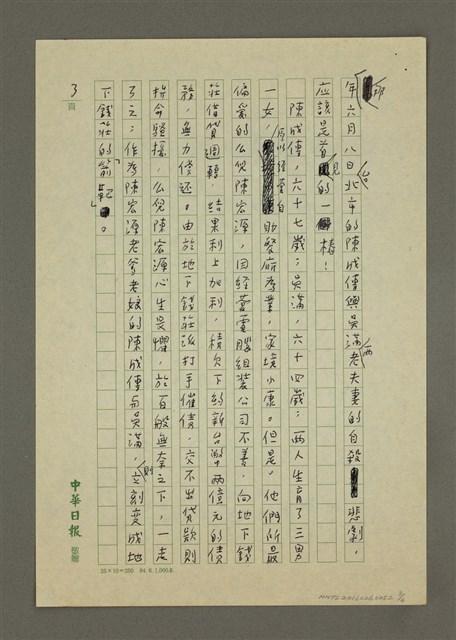 年六月八日台北市的陳成傳與吳滿老夫妻的自殺悲劇，
應該是首見的一樁！
陳成傳，六十七歲；吳滿，六十四歲；兩人生育了三男
一女，原以經營自助餐廳為業，家境小康。但是，他們所最
偏愛的么兒陳宏源，因經營電腦組裝公司不善，向地下錢
莊借貸週轉，結果利上加利，積欠下約新台幣兩億元的債
務，無力償還。由於地下錢莊派打手催債，交不出貸款則
拚命騷擾，么兒陳宏源心生畏懼，於百般無奈之下，一走
了之；作為陳宏源老爹老娘的陳成傳與吳滿，則立刻變成地
下錢莊的「箭靶」。
3
頁
中華日報
25×10=250 84.6.1,000本